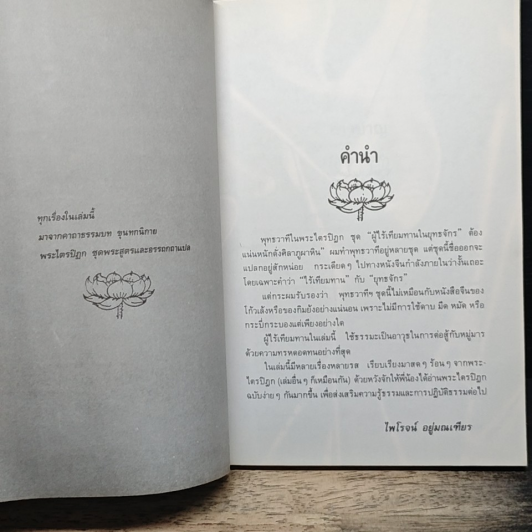 ทุกเรื่องในเล่มนี้
มาจากคาถาธรรมบท ขุนทกนิกาย
พระไตรปิฎก ชุดพระสูตรและอรรถกถาแปล
คำนำ
พุทธวาทีในพระไตรปิฎก ชุด "ผู้ไร้เทียมทานในยุทธจักร" ต้อง
แน่นหนักดังศิลาภูผาหิน" ผมทำพุทธวาทีอยู่หลายชุด แต่ชุดนี้ชื่อออกจะ
แปลกอยู่สักหน่อย กระเดียดๆ ไปทางหนังจีนกำลังภายในว่างั้นเถอะ
โดยเฉพาะคำว่า "ไร้เทียมทาน" กับ "ยุทธจักร"
แต่กระผมรับรองว่า พุทธวาทีฯ ชุดนี้ไม่เหมือนกับหนังสือจีนของ
โก้วเล้งหรือของกิมย้งอย่างแน่นอน เพราะไม่มีการใช้ดาบ มีด หมัด หรือ
กระบี่กระบองแต่เพียงอย่างใด
ผู้ไร้เทียมทานในเล่มนี้ ใช้ธรรมะเป็นอาวุธในการต่อสู้กับหมู่มาร
ด้วยความทรหดอดทนอย่างที่สุด
ในเล่มนี้มีหลายเรื่องหลายรส เรียบเรียงมาสดๆ ร้อนๆ จากพระ-
ไตรปิฎก (เล่มอื่นๆ ก็เหมือนกัน) ด้วยหวังจักให้พี่น้องได้อ่านพระไตรปิฎก
ฉบับง่ายๆ กันมากขึ้น เพื่อส่งเสริมความรู้ธรรมและการปฏิบัติธรรมต่อไป
ไพโรจน์ อยู่มณเฑียร